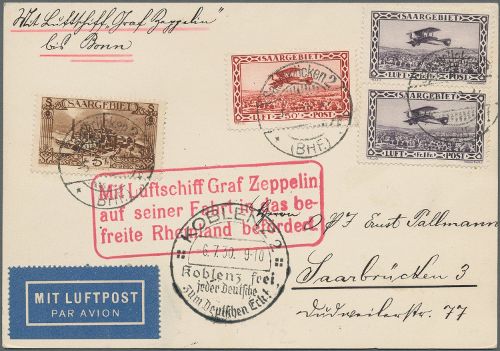 Mit Luftschiff „Graf Zeppelin"
bis Bonn
SAARGEBIET
LUFT- POST
SAARGEBIET
LUFT- POST
SAARGEBIET
LUFT- POST
SAARGEBIET
(BHF)
(BHF)
Mit Luftschiff Graf Zeppelin
auf seiner Fahrt in das be-
freite Rheinland befördert.
KOBLENZ 2
6.7.30. 9-10
Koblenz frei,
jeder Deutsche
zum Deutschen Eck!
Herrn
Ernst Tallmann
Saarbrücken 3
Dudweilerstr. 77
MIT LUFTPOST
PAR AVION